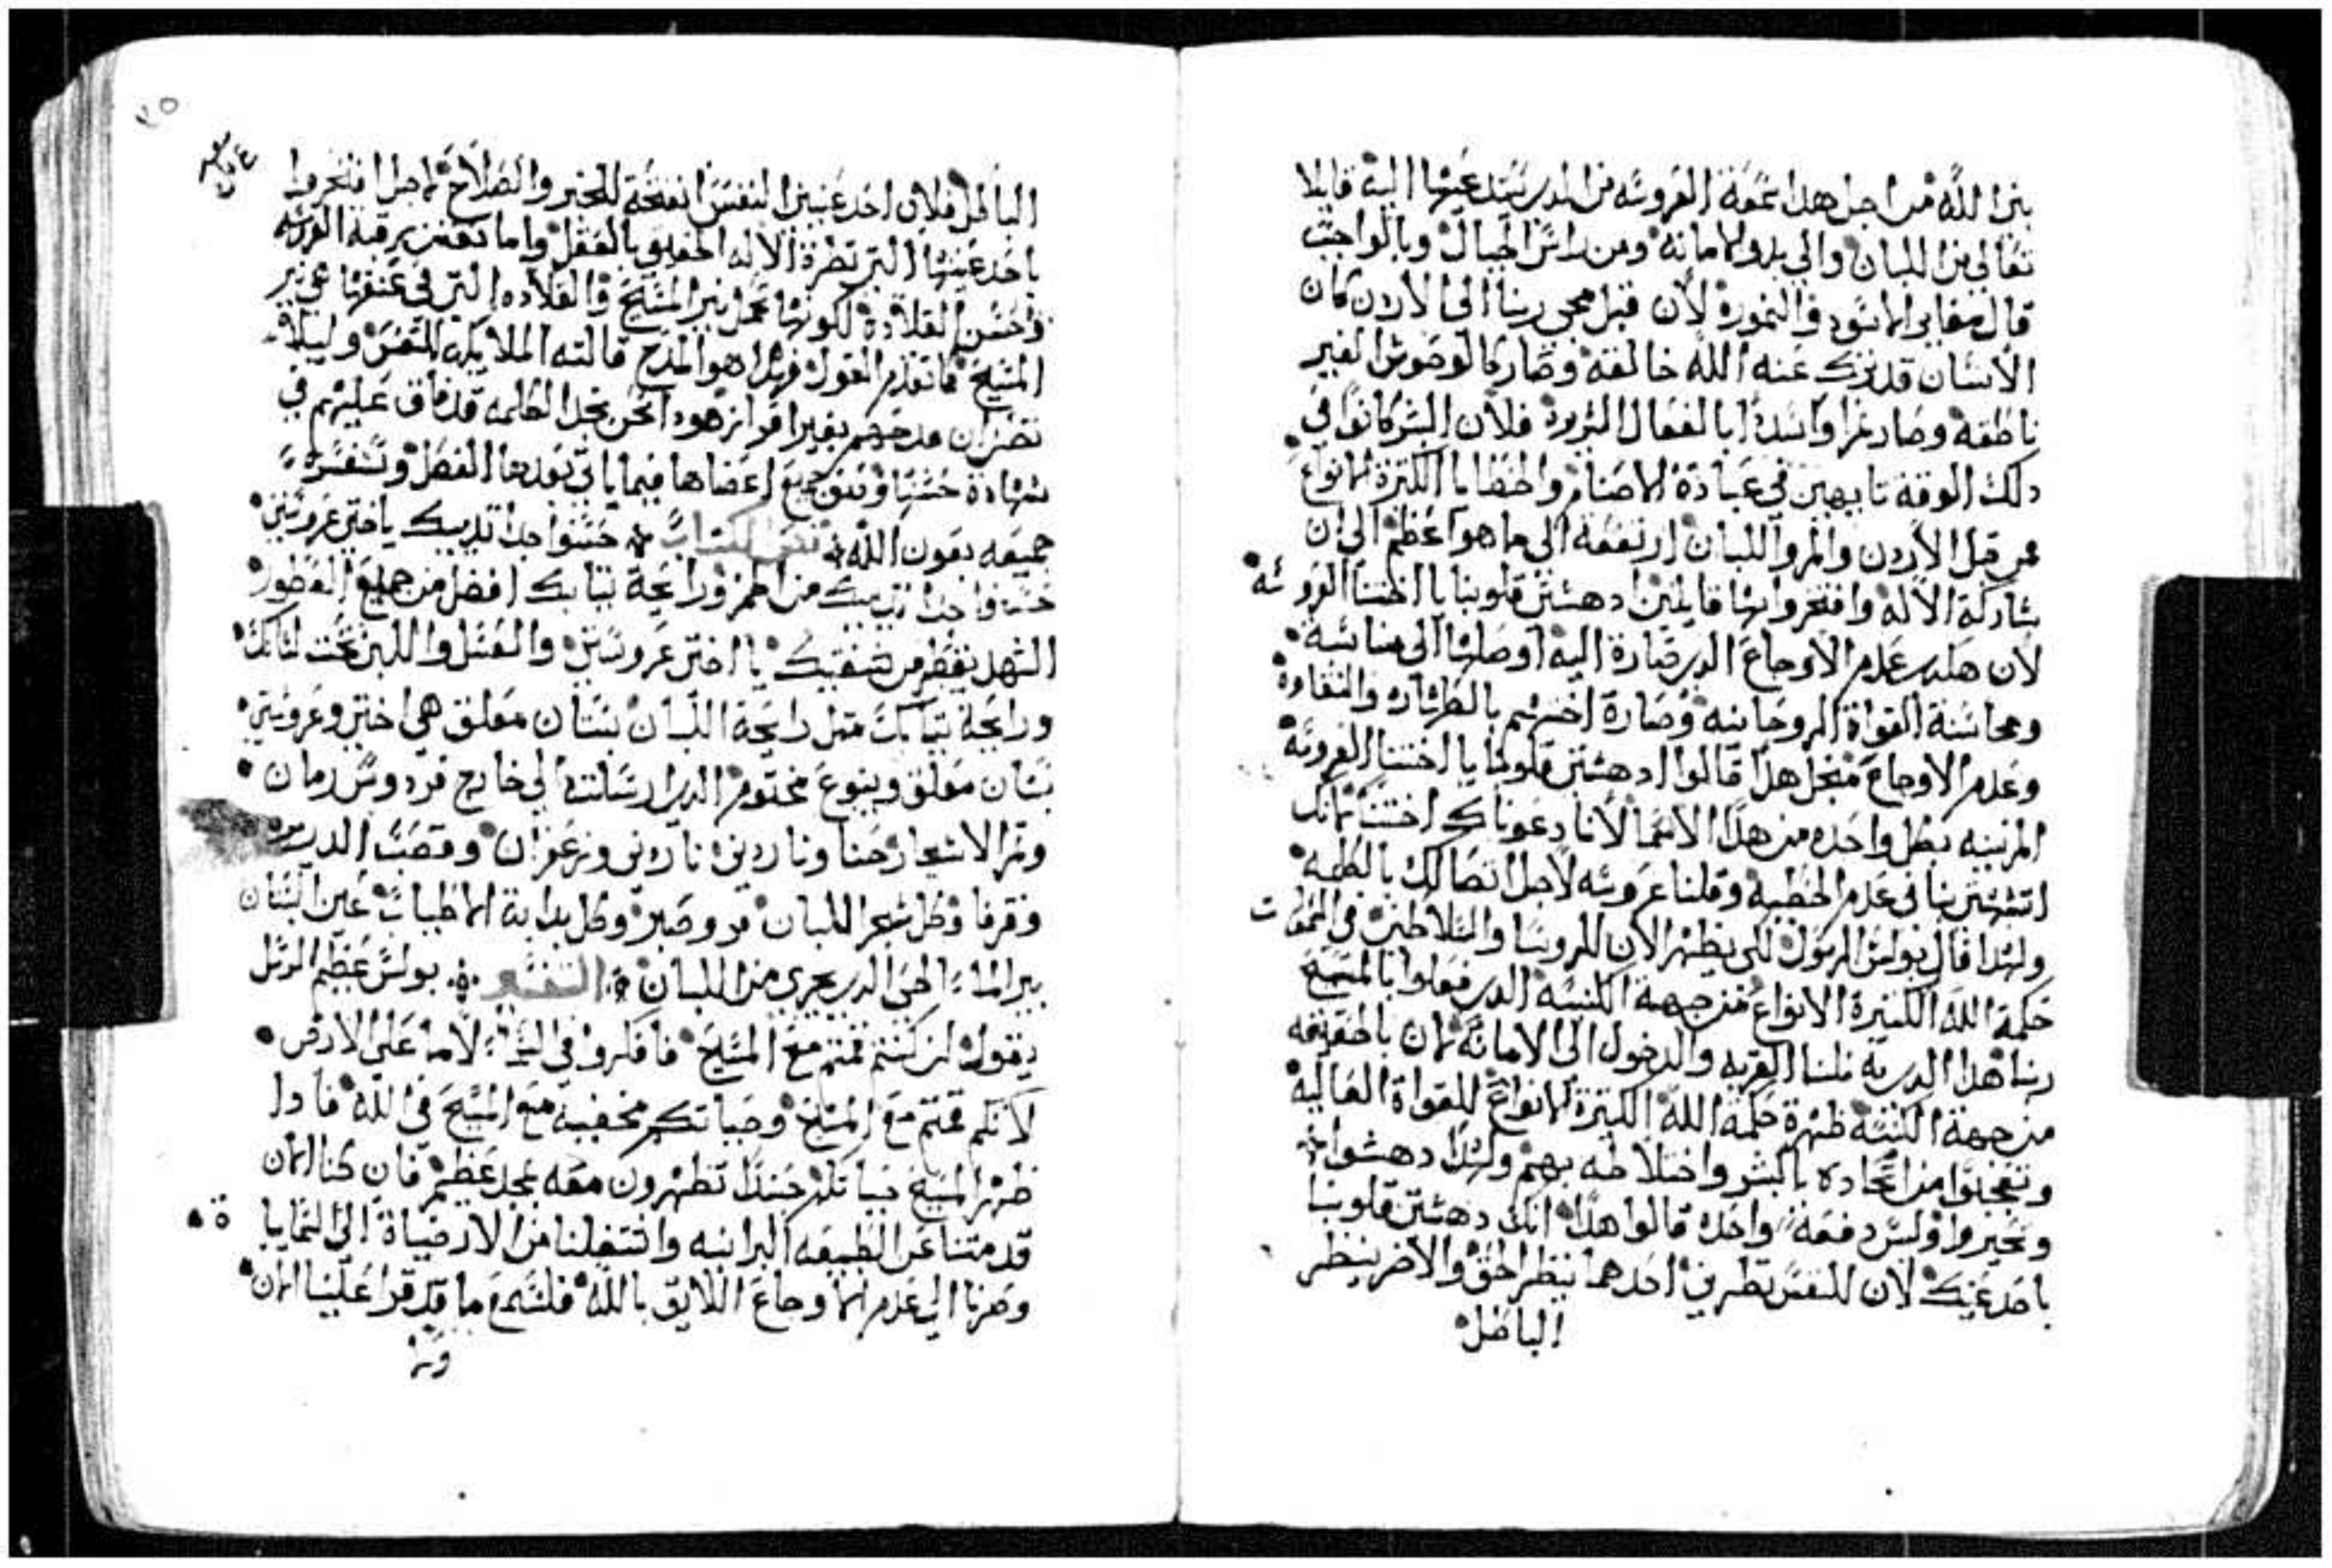 بير الله من اجل هذا سمعة العروسه من الدي يستدعيها اليه قايلا
تعالي من اللبان والي بدو الامانه ومن راس الجبال وبالواجب
قال مغاير الاسود والنمورة لان قبل مجي ربنا الى الاردن كان
الانسان قد ترك عنه الله خالقه وصار كالوحوش الغير
ناطقه وصار نمرا واسدا بالفعال الرديه فلان البشر كانوا في
دلك الوقت تايهين في عبادة الاصنام والخطايا الكثيرة الانواع
من قبل الاردن والمر واللبان ارتفعة الى ما هو اعظم الى ان
شاركة الاله وافتخروا بها قايلين ادهشتي قلوبنا يا اختنا العروسه
لان هكدا عدم الاوجاع الدي صارة اليه اوصلها الى مناسبة
ومجانسة القواة الروحانيه وصارة اختهم بالطهارة والنقاوة
وعدم الاوجاع فنجل هدا قالوا ادهشتي قلوبنا يا اختنا العروسة
المزينه بكل واحده من هدا الاسما لاننا دعوناك اختنا لانك
اتشبهتي بنا في عدم الخطيه وقلنا عروسه لاجل اتصالك بالكلمه
ولهدا قال بولس الرسول لكي يظهر الان للروسا والسلاطين في السموات
حكمة الله الكثيرة الانواع من جهة الكنيسه الدي فعلها بالمسيح
ربنا هدا الدي به نلنا القربه والدخول الى الامانة لان بالحقيقه
من جهة الكنيسة ظهرة حكمة الله الكثيرة الانواع للقواة العالية
وتعجبوا من اتحاده بالبشر واختلاطه بهم ولهدا دهشوا
وتحيروا وليس دفعة واحده قالوا هدا انك دهشتي قلوبنا
باحد عينيك لان للنفس نظرين احدهما ينظر الحق والاخر ينظر
الباطل
٧٥
الباطل فلان احد عينين النفس انفتحة للخير والصلاح لاجل افتخروا
باحد عينيها التي نظرة الاله الحقيقي بالعقل واما بعض رقبة العروسه
وحسن القلادة لكونها تحمل نير المسيح والقلاده التي في عنقها هي نير
المسيح فاتقدم القول فهدا هو المدح قالته الملايكة للنفس وليلا
تضن ان مدحهم بغير افراز هوذا نحن نجد الكلمه قد فاق عليهم في
شهادة حسنها وفي جميع اعضاها فيما ياتي بعد هدا الفصل ونفسره
جميعه بعون الله نص الكتاب حسنوا جدا تدييك يا اختي عروستي
حسنوا جدا تدييك من الخمر ورايحة تيابك افضل من جميع العطور
الشهد يقطر من شفتيك يا اختي عروستي والعسل واللبن تحت لسانك
ورايحة تيابك متل رايحة اللبان بستان مغلق هي اختي وعروستي
بستان مغلق وينبوع مختوم الدي ارسالتة الي خارج فردوس رمان
وتمر الاشجار حنا وناردين ناردين وزعفران وقصب الدريره
وقرفا وكل شجر اللبان مر وصبر وكل بداية الاطياب عين البستان
بير الماء الحي الدي يجري من اللبان التفسير بولس عظيم الرسل
يقول ان كنتم قمتم مع المسيح فافكروا في السماء لا ما على الارض
لانكم قمتم مع المسيح وحياتكم مخفيه مع المسيح في الله فادا
ظهر المسيح حياتكم حينئدا تظهرون معه بمجد عظيم فان كنا الان
قد متنا عن الطبيعه البرانيه وانتقلنا من الارضياة الى السمايية
وصرنا الي عدم الاوجاع اللايق بالله فلنسمع ما قد قرا علينا الان
ومن